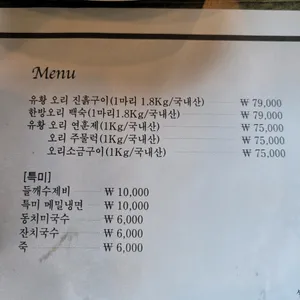 Menu
유황 오리 진흙구이(1마리 1.8Kg/국내산) ₩ 79,000
한방오리 백숙(1마리1.8Kg/국내산) ₩ 79,000
유황 오리 연훈제(1Kg/국내산) ₩ 75,000
오리 주물럭(1Kg/국내산) ₩ 75,000
오리소금구이(1Kg/국내산) ₩ 75,000
[특미]
들깨수제비 ₩ 10,000
특미 메밀냉면 ₩ 10,000
동치미국수 ₩ 6,000
잔치국수 ₩ 6,000
죽 ₩ 6,000